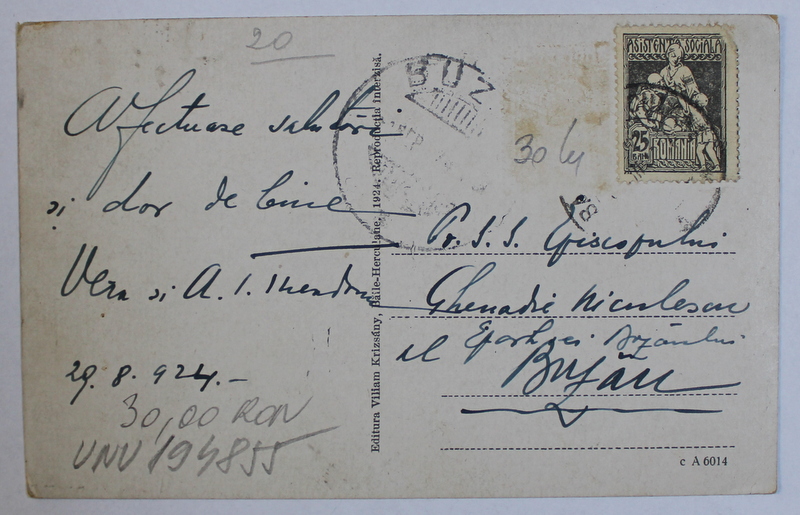 20
Afectuoase salutări
și dor de bine
Vera și A. I. Theodoru
29. 8. 924.-
30,00 RON
UNV 194855
Editura Viliam Krizsány, Băile-Herculane, 1924. Reproducția interzisă.
BUZ
30 lei
ASISTENȚA SOCIALA
25 BANI
ROMANIA
Pr. S. S. Episcopului
Ghenadie Niculescu
al Eparhiei Buzăului
Buzău
c A 6014